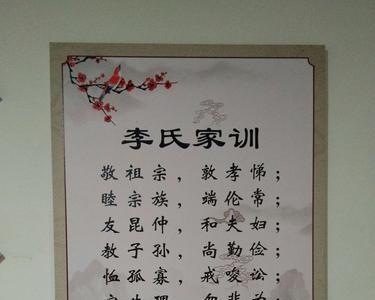 李氏家训
敬祖宗，敦孝悌；
睦宗族，端伦常；
友昆仲，和夫妇；
教子孙，尚勤俭；
恤孤寡，戒唆讼；